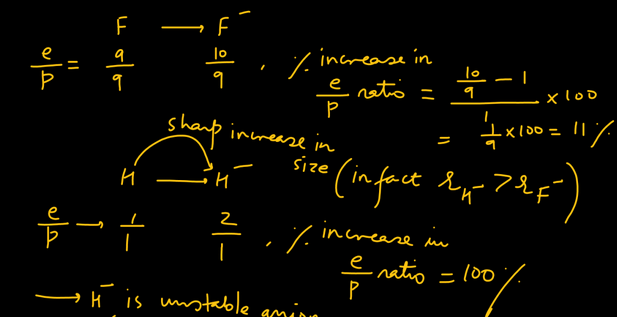 F ⟶ F⁻
e/p = 9/9 10/9 , % increase in
e/p ratio = (10/9 − 1)/1 × 100
= 1/9 × 100 = 11 %
sharp increase in
size
H ⟶ H⁻ (infact r_H⁻ > r_F⁻)
e/p ⟶ 1/1 2/1 , % increase in
e/p ratio = 100 %
⟶ H⁻ is unstable anion